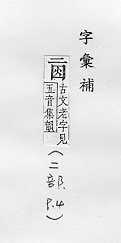 字彙補
古文老字見
五音集韻
(二部. P.4)